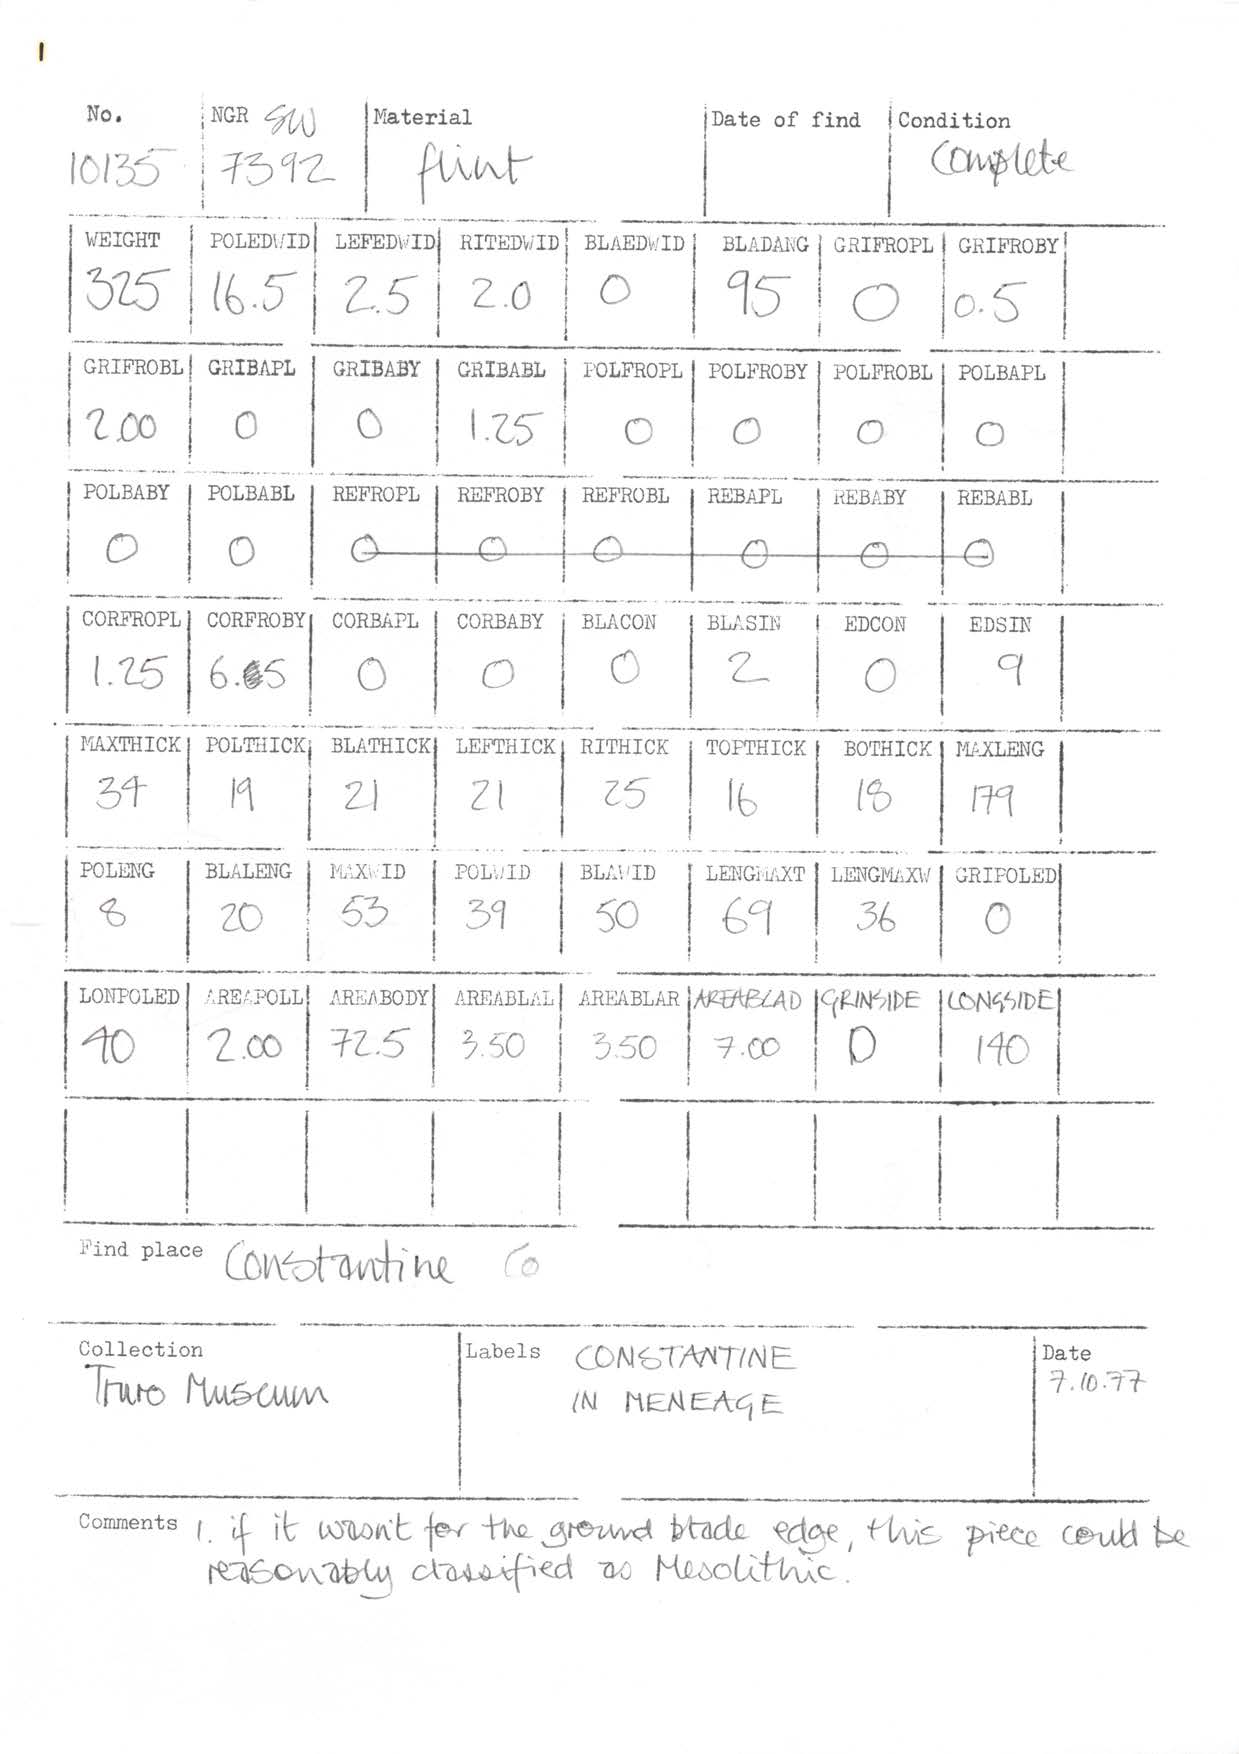 1
No. NGR SW Material Date of find Condition
10135 7392 flint Complete
WEIGHT POLEDWID LEFEDWID RITEDWID BLAEDWID BLADANG GRIFROPL GRIFROBY
325 16.5 2.5 2.0 0 95 0 0.5
GRIFROBL GRIBAPL GRIBABY GRIBABL POLFROPL POLFROBY POLFROBL POLBAPL
2.00 0 0 1.25 0 0 0 0
POLBABY POLBABL REFROPL REFROBY REFROBL REBAPL REBABY REBABL
0 0 0 0 0 0 0 0
CORFROPL CORFROBY CORBAPL CORBABY BLACON BLASIN EDCON EDSIN
1.25 6.5 0 0 0 2 0 9
MAXTHICK POLTHICK BLATHICK LEFTHICK RITHICK TOPTHICK BOTHICK MAXLENG
34 19 21 21 25 16 18 179
POLENG BLALENG MAXWID POLWID BLAWID LENGMAXT LENGMAXW GRIPOLED
8 20 53 39 50 69 36 0
LONPOLED AREAPOLL AREABODY AREABLAL AREABLAR AREABLAD GRINSIDE LONGSIDE
40 2.00 72.5 3.50 3.50 7.00 0 140
Find place Constantine Co
Collection Labels CONSTANTINE Date
Truro Museum IN MENEAGE 7.10.77
Comments 1. if it wasn't for the ground blade edge, this piece could be
reasonably classified as Mesolithic.